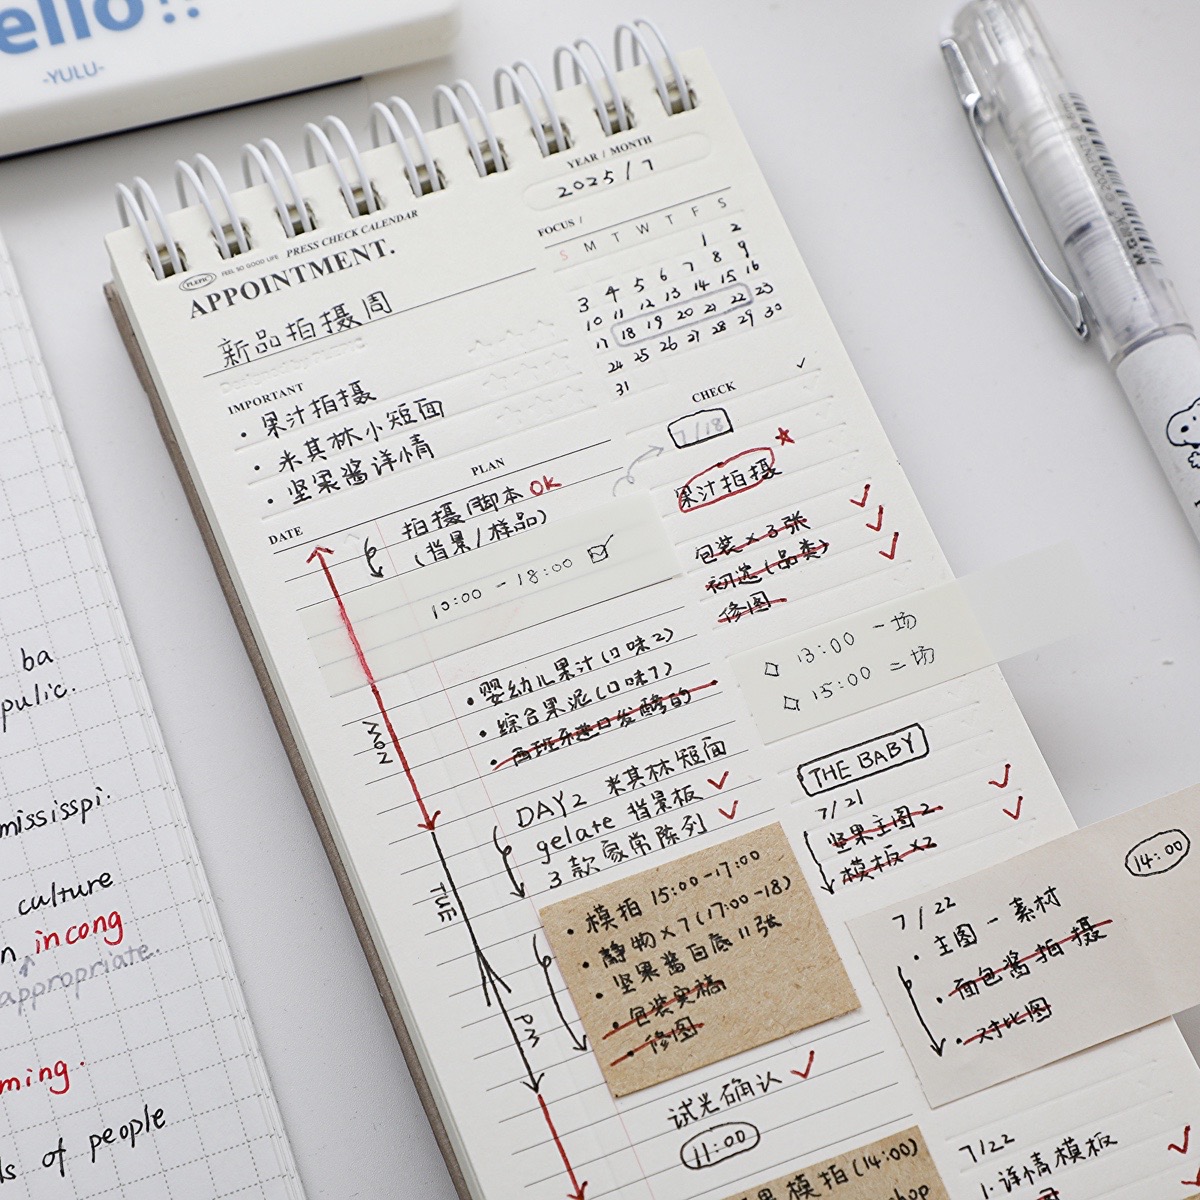 ello!!
-YULU-
PLEPIC
FEEL SO GOOD LIFE
PRESS CHECK CALENDAR
APPOINTMENT.
新品拍摄周
YEAR / MONTH
2025/7
FOCUS /
S M T W T F S
1 2
3 4 5 6 7 8 9
10 11 12 13 14 15 16
17 18 19 20 21 22 23
24 25 26 27 28 29 30
31
IMPORTANT
· 果汁拍摄
· 米其林小短面
· 坚果酱详情
DATE
PLAN
拍摄脚本 OK
(背景/样品)
10:00 - 18:00
· 婴幼儿果汁(口味2)
· 综合果泥(口味1)
· 西班牙进口发酵的
MON
DAY2 米其林短面
gelate 背景板
3款家常陈列
TUE
· 模拍 15:00-17:00
· 静物x7(17:00-18)
· 坚果酱白底11张
· 包装实稿
· 修图
PM
试光确认
11:00
模拍(14:00)
hop
CHECK
7/18
果汁拍摄
包装x3张
初选(品类)
修图
13:00 一场
15:00 二场
THE BABY
7/21
坚果主图2
模板x2
14:00
7/22
· 主图一素材
· 面包酱拍摄
· 对比图
7/22
1.详情模板
ba
pulic.
mississpi.
culture
n incong
appropriate.
ming.
ls of people
M&G